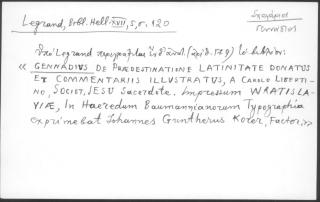 Legrand, Bibl. Hell. XVII, 5, σ. 120
Σχολάριος
Γεννάδιος
Ὑπὸ Legrand περιγράφεται (ἀριθ. 179) τὸ βιβλίον:
« GENNADIUS DE PRÆDESTINATIONE LATINITATE DONATUS
ET COMMENTARIIS ILLUSTRATUS, A CAROLO LIBERTI-
NO, SOCIET. JESU Sacerdote. Impressum WRATISLA-
VIÆ, In Haeredum Baumannianorum Typographia
exprimebat Johannes Guntherus Rörer, Factor.»